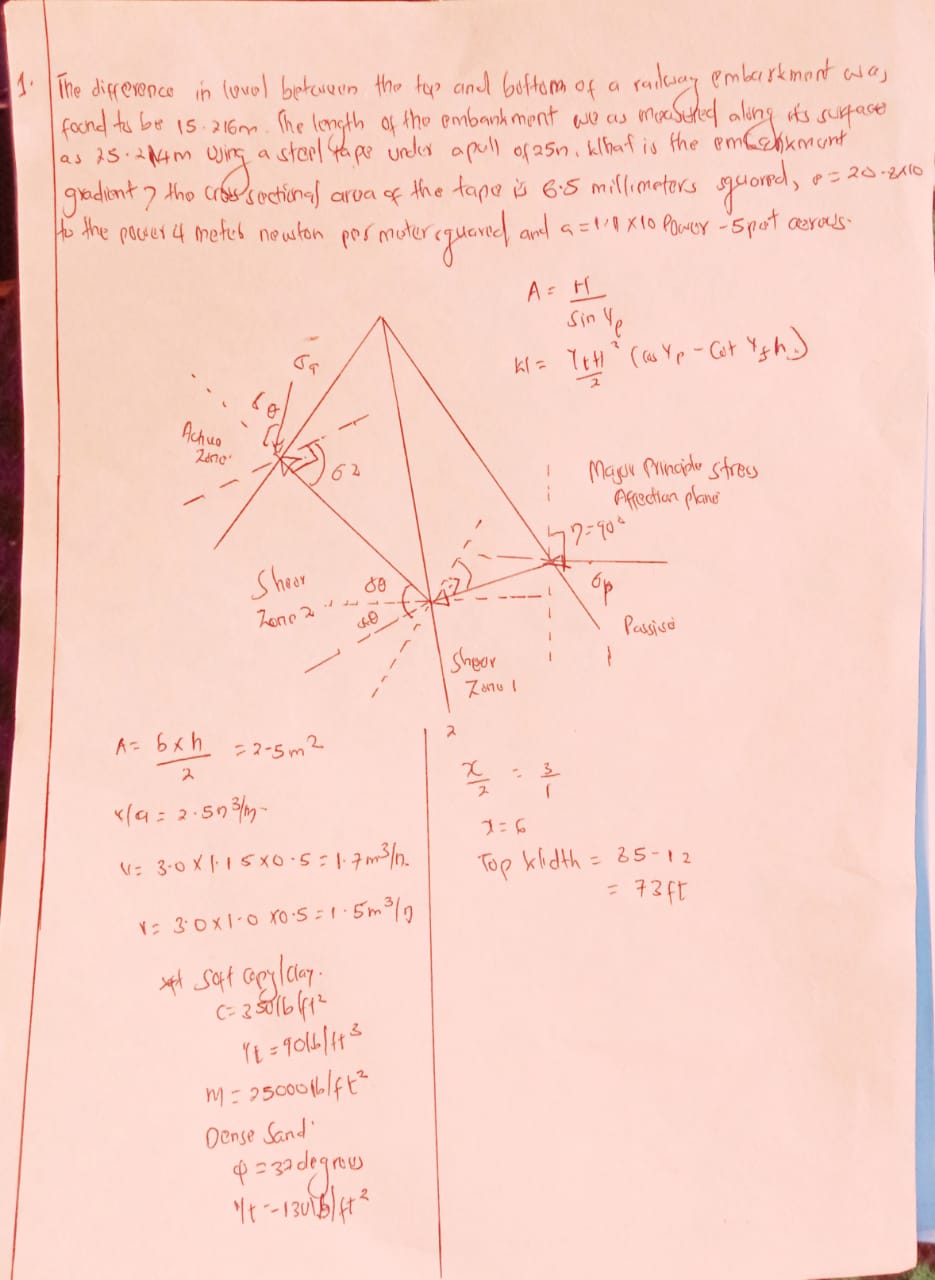 1. The difference in level between the top and bottom of a railway embarkment was
found to be 15.216m. The length of the embankment was measured along its surface
as 25.214m using a steel tape under a pull of 25n. What is the embankment
gradient? the cross sectional area of the tape is 6.5 millimeters squared, e = 20.8x10
to the power 4 newton per meter squared and a = 1.1 x 10 Power -5
A = H
Sin Ψp
W = γt H² (Cos Ψp - Cot Ψf h.)
2
σa
δθ
Active
Zone
62
Major Principle stress
Affection plane
η=90°
σp
Passive
1
Shear
Zone 2
δθ
δθ
Shear
Zone 1
2
A = b x h = 2.5m²
2
v/a = 2.5n³/m
V = 3.0 x 1.15 x 0.5 = 1.7m³/n.
V = 3.0 x 1.0 x 0.5 = 1.5m³/n
Soft Clay.
C = 350lb/ft²
γt = 90lb/ft³
M = 25000lb/ft²
Dense Sand
φ = 32 degrees
γt = 130lb/ft²
x = 3
2 1
x = 6
Top Width = 85-12
= 73ft